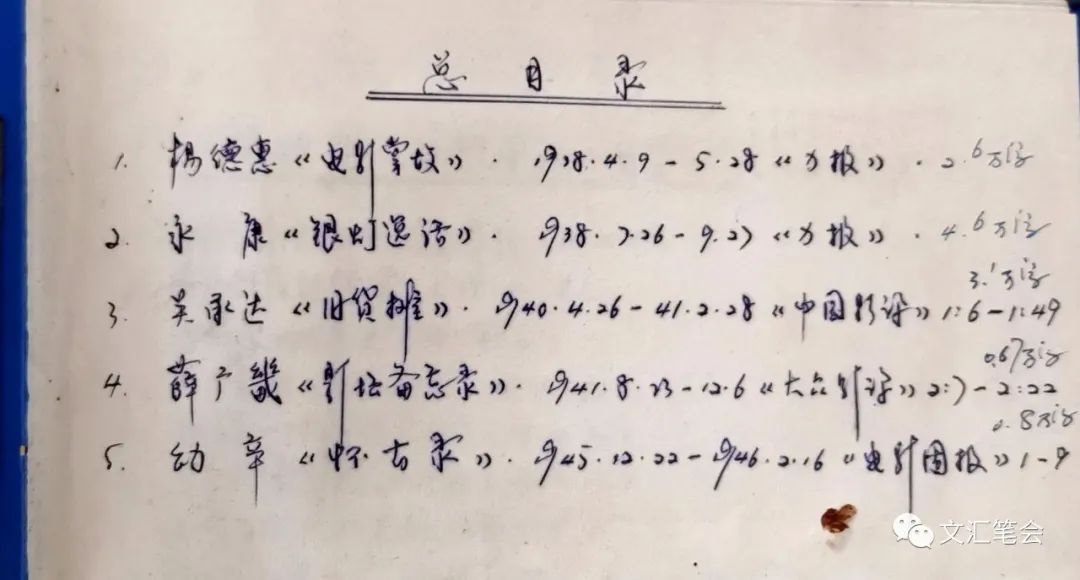 总目录
1. 杨德惠《电影掌故》. 1938.4.9-5.28《力报》. 2.6万字
2. 永康《银灯逸话》. 1938.7.26-9.27《力报》. 4.6万字
3.1万字
3. 吴承达《旧货摊》. 1940.4.26-41.2.28《中国影讯》1:6-1:49
0.67万字
4. 薛广畿《影坛备忘录》. 1941.8.23-12.6《大众影讯》2:7-2:22
0.8万字
5. 幼辛《怀古录》. 1945.12.22-1946.2.16《电影周报》1-9
文汇笔会